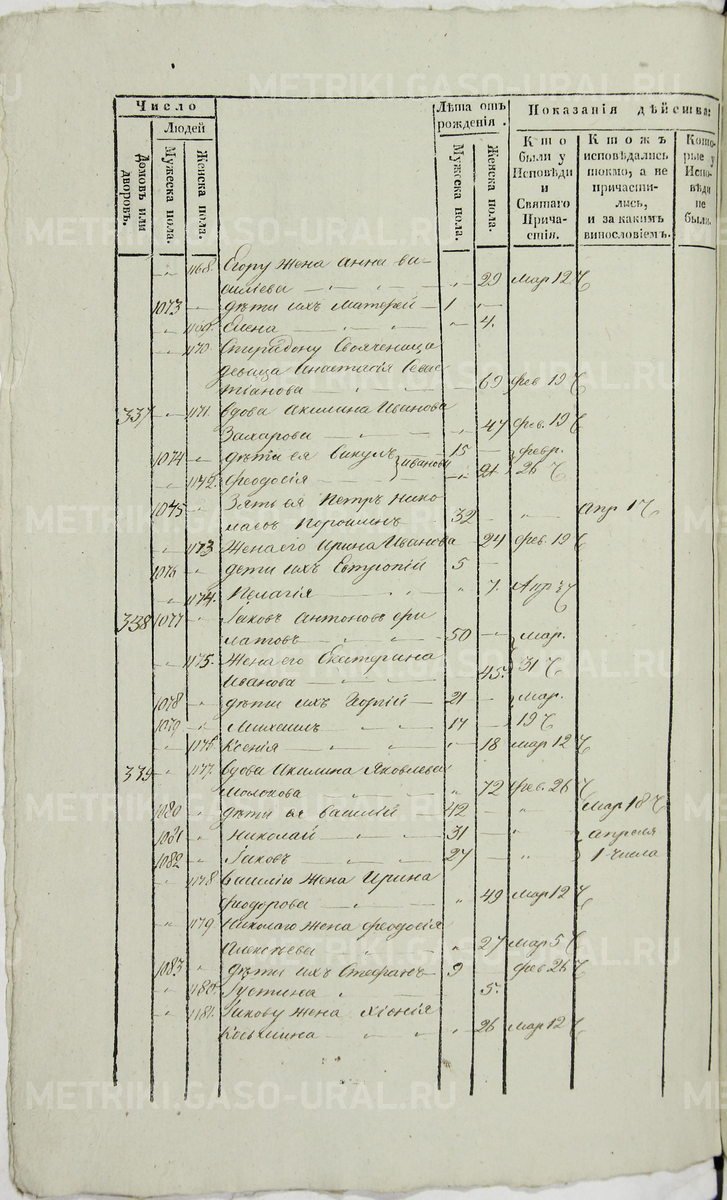 Число
Людей
Домовъ или дворовъ.
Мужеска пола.
Женска пола.
Лѣта отъ рожденія.
Мужеска пола.
Женска пола.
Показанія дѣйства:
Кто были у Исповѣди и Святаго Прича-стія.
Ктожъ исповѣдались токмо, а не причасти-лись, и за какимъ винословіемъ.
Кото-рые у Испо-вѣди не были.
" 1168. Егору жена Анна Ва-
силіева " 29 Мар 12 Ч
1073 " дѣти ихъ Матѳей 1 "
" 1169. Елена " 4.
" 1170 Спиридону Свояченица
девица Анастасія Севас
тіанова 69 фев 19 Ч
337 " 1171. вдова Акилина Иванова
Захарова " 47 фев. 19 Ч
1074 " дѣти ея Викулъ } Ивановы 15 " } февр.
" 1172. Феодосія " 21 } 26 Ч
1075 " Зять ея Петръ Нико
лаевъ Порошинъ 32 " Апр 1 Ч
" 1173 Жена его Ирина Иванова " 24 фев. 19 Ч
1076 " дети ихъ Евтропій 5 "
" 1174. Пелагія " 7. Апр Ч
338 1077 " Іаковъ Антоновъ Фи
латовъ 50 " } мар.
" 1175. Жена его Екатерина
Иванова 45. } 31 Ч
1078 " дѣти ихъ Георгій 21 " } мар.
1079 " Михаилъ 17 " } 19 Ч
" 1176. Ксенія " 18 мар 12 Ч
339 " 1177. вдова Акилина Яковлева
" 72 фев. 26 Ч
1080 " дѣти ея Василій 42 " " Мар 18 Ч
1081 " Николай 31 " " } апреля
1082 " Іаковъ 27 " " } 1 числа
" 1178 Василію жена Ирина
Феодорова " 49 мар 12 Ч
" 1179 Николаю жена Феодосія
Алексѣева " 27 Мар 5 Ч
1083 " дѣти ихъ Стефанъ 9 " фев 26 Ч
" 1180 Іустина " 5.
" 1181. Іакову жена Хіонія
Козьмина " 26 мар 12 Ч
METRIKI.GASO-URAL.RU